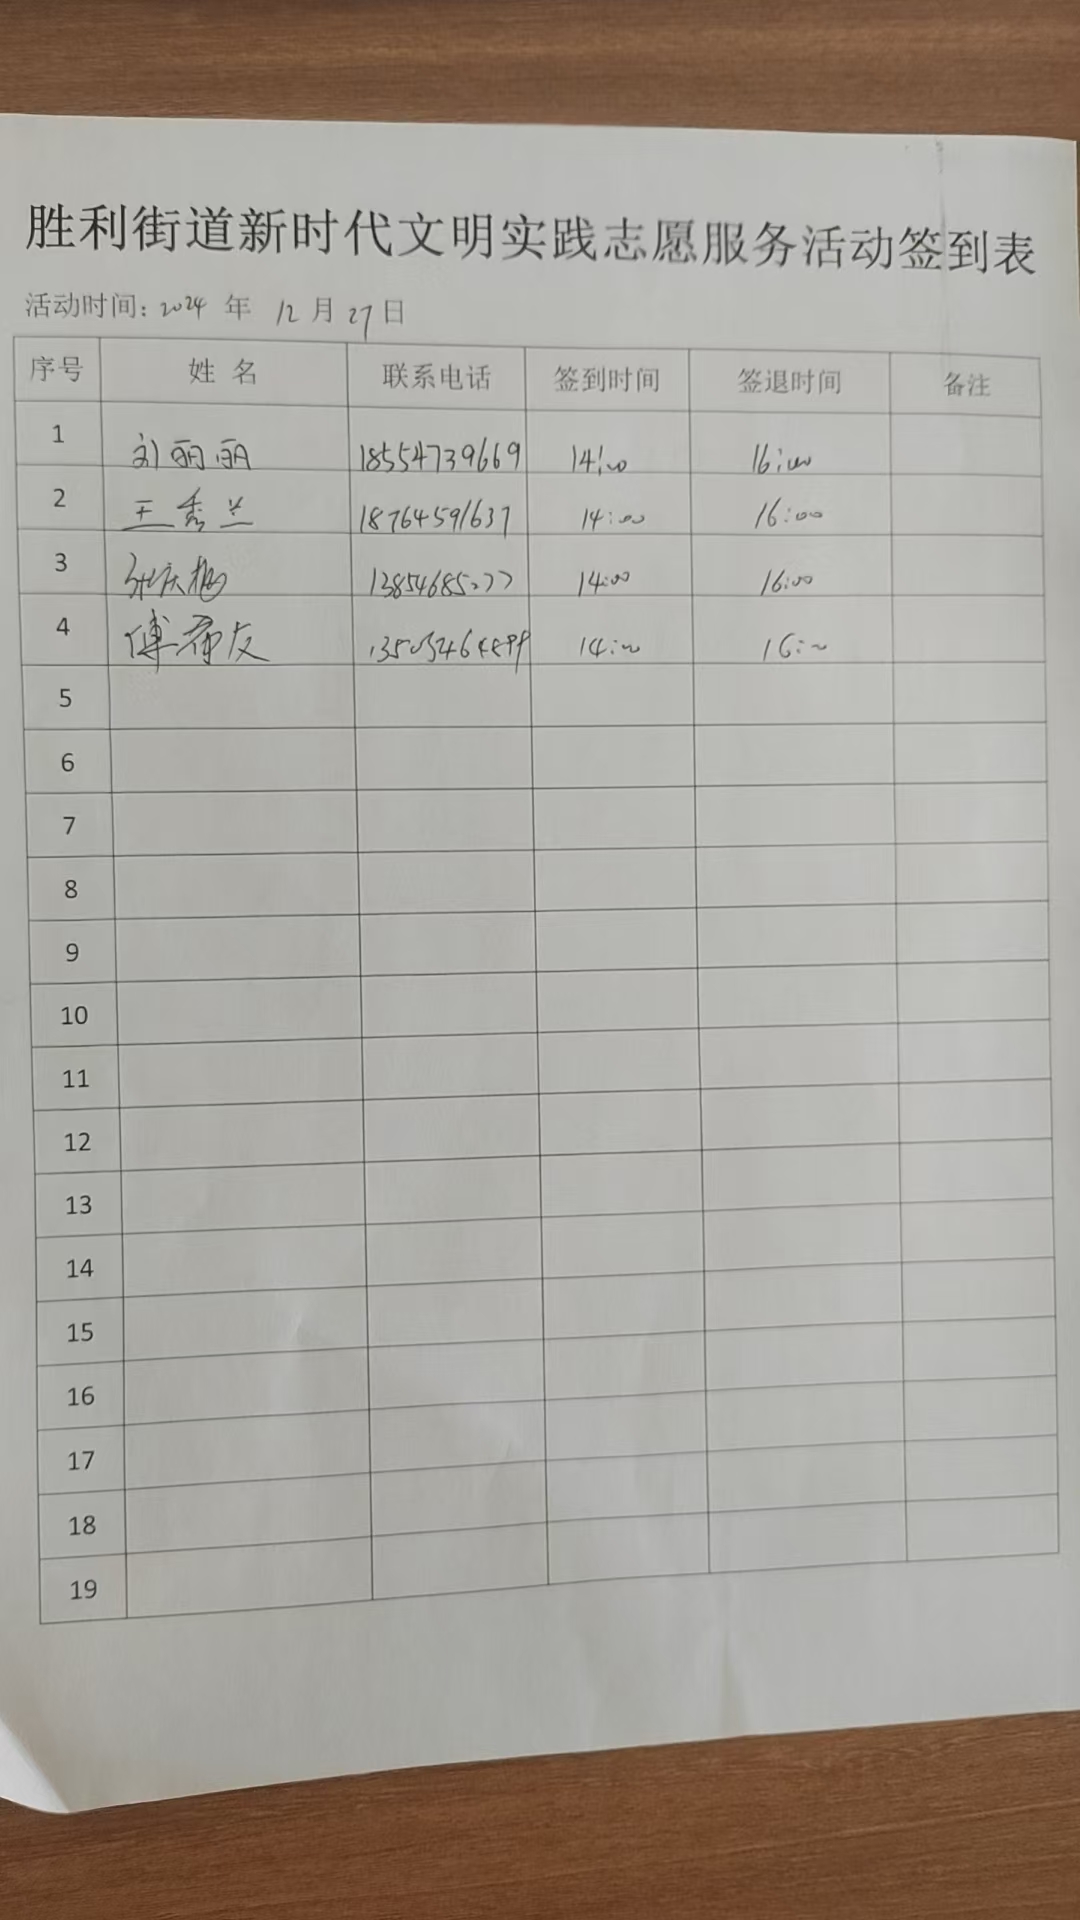 胜利街道新时代文明实践志愿服务活动签到表
活动时间: 2024 年 12 月 27 日
序号 姓 名 联系电话 签到时间 签退时间 备注
1 刘丽丽 18554739669 14:00 16:00
2 王秀兰 18764591637 14:00 16:00
3 张庆梅 13854685077 14:00 16:00
4 傅希友 14:00 16:00
5
6
7
8
9
10
11
12
13
14
15
16
17
18
19